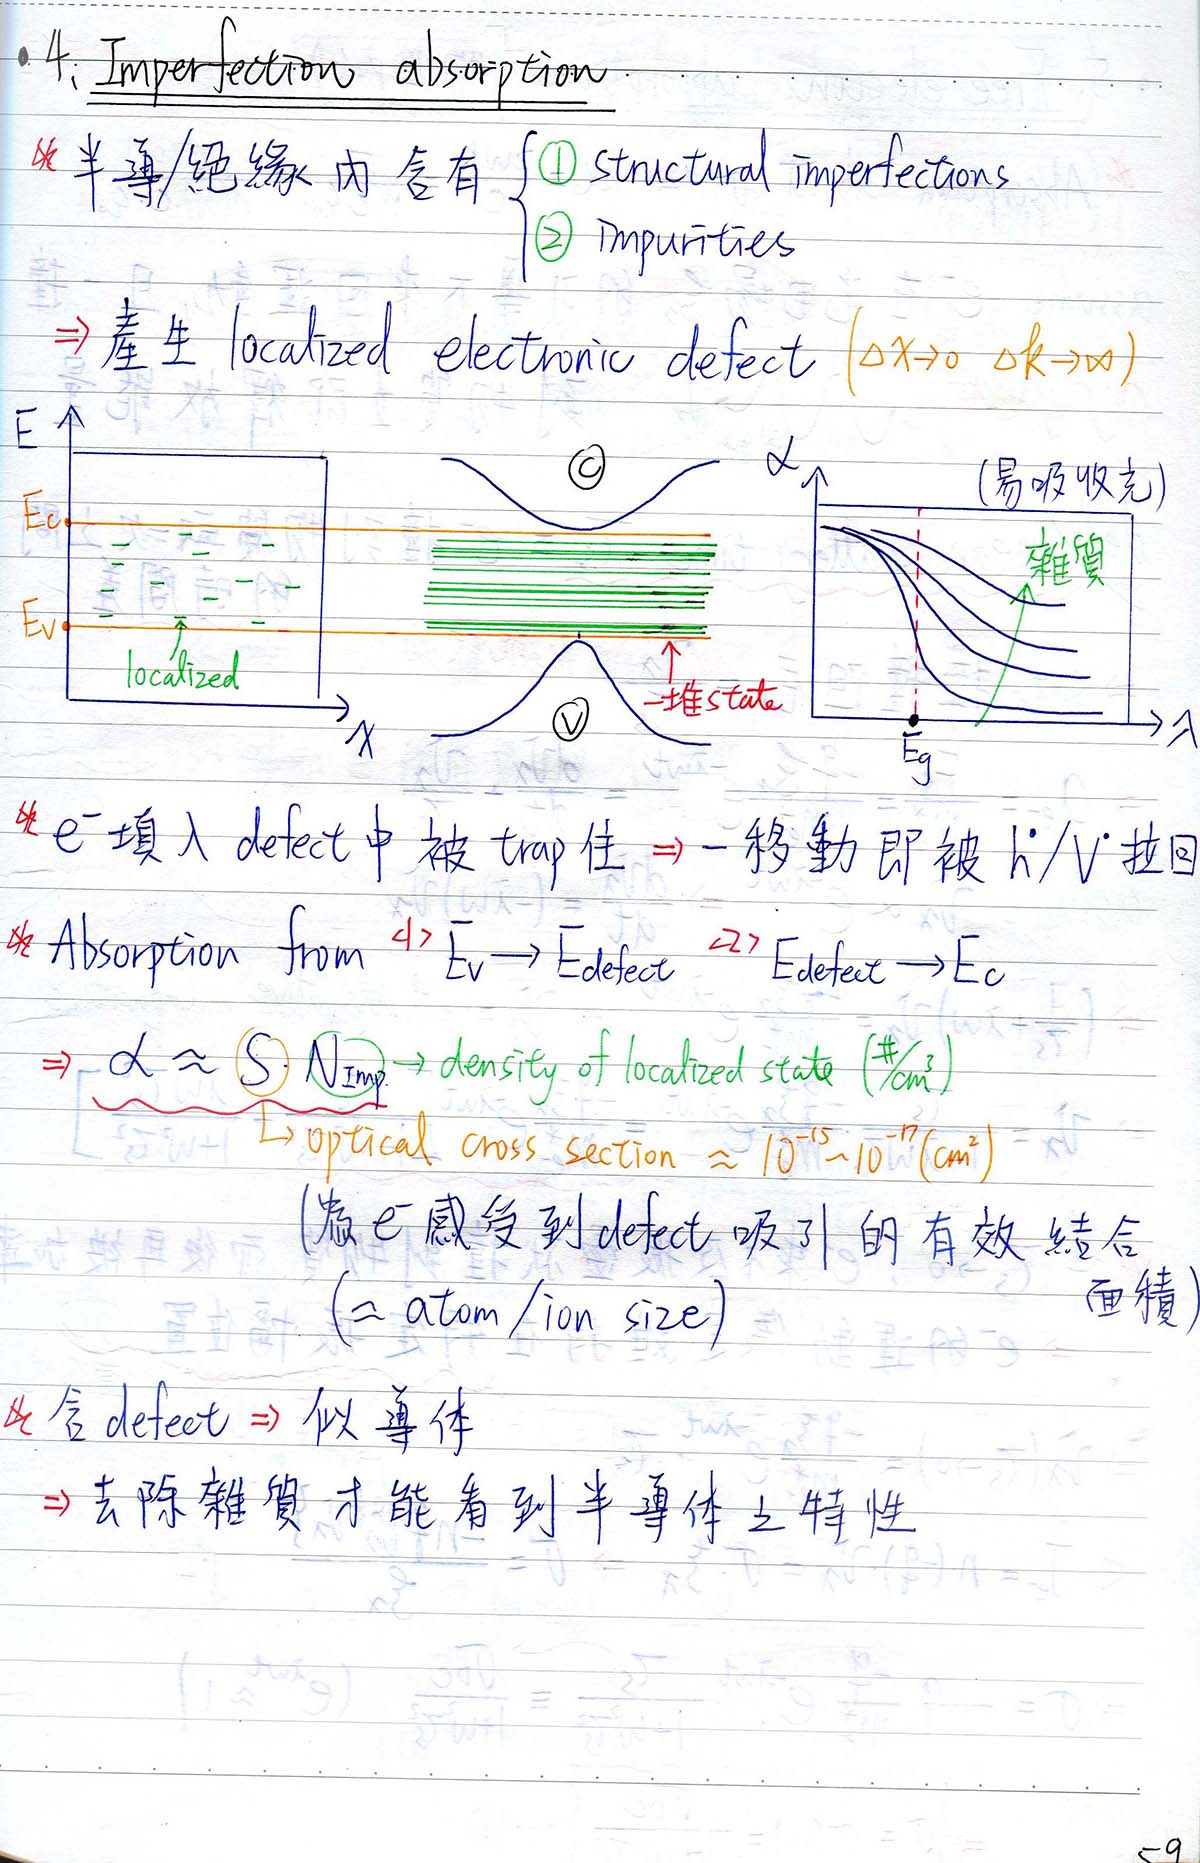 4. Imperfection absorption
半導/絕緣內含有 { ① structural imperfections
② impurities
⇒ 產生 localized electronic defect (ΔX→0 Δk→∞)
E
Ec
Ev
localized
X
C
V
一堆state
α
(易吸收光)
雜質
Eg
λ
e⁻填入defect中被trap住 ⇒ 一移動即被h˙/V˙拉回
Absorption from <1> Ev → Edefect <2> Edefect → Ec
⇒ α ≈ S · NImp. → density of localized state (#/cm³)
↳ optical cross section ≈ 10⁻¹⁵ ~ 10⁻¹⁷ (cm²)
(為e⁻感受到defect吸引的有效結合面積)
(≈ atom/ion size)
含defect ⇒ 似導体
⇒ 去除雜質才能看到半導体之特性
-9